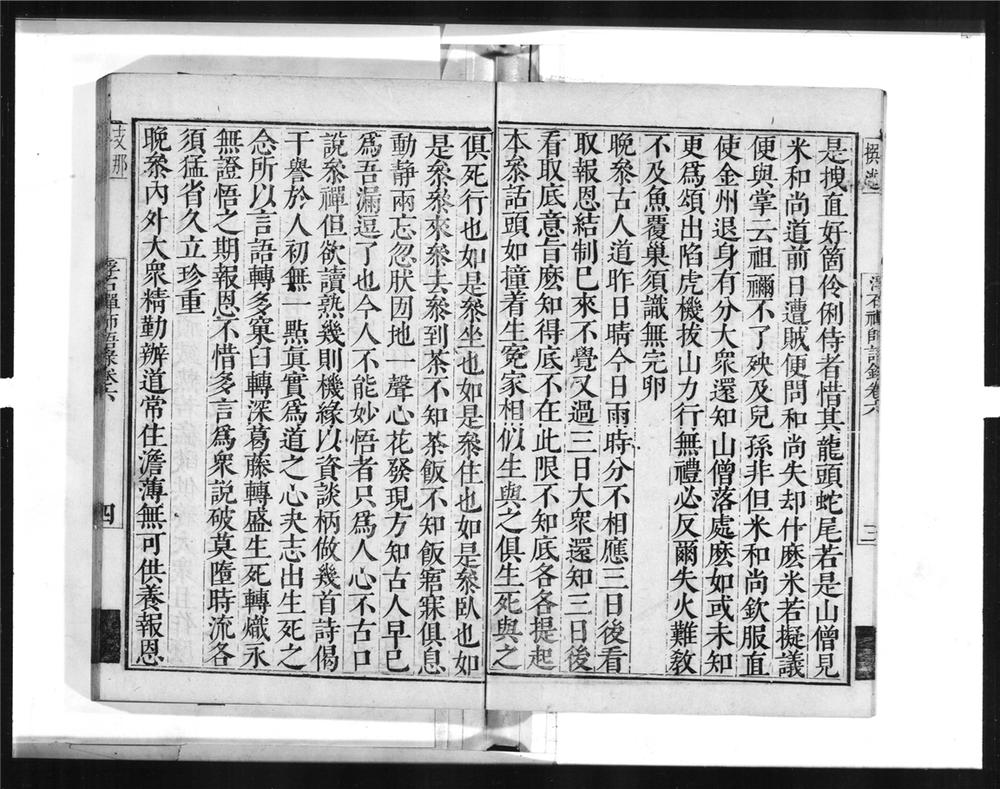 是拽直好箇伶俐侍者惜其龍頭蛇尾若是山僧見
米和尚道前日遭賊便問和尚失却什麽米若擬議
便與掌云祖禰不了殃及兒孫非但米和尚欽服直
使金州退身有分大衆還知山僧落處麽如或未知
更爲頌出陷虎機拔山力行無禮必反爾失火難救
不及魚覆巢須識無完卵
晩參古人道昨日晴今日雨時分不相應三日後看
取報恩結制已來不覺又過三日大衆還知三日後
看取底意旨麽知得底不在此限不知底各各提起
本參話頭如撞着生寃家相似生與之俱生死與之
俱死行也如是參坐也如是參住也如是參臥也如
是參參來參去參到茶不知茶飯不知飯寤寐俱息
動靜兩忘忽肰囡地一聲心花發現方知古人早已
爲吾漏逗了也今人不能妙悟者只爲人心不古口
說參禪但欲讀熟幾則機緣以資談柄做幾首詩偈
干譽於人初無一點眞實爲道之心夫志出生死之
念所以言語轉多窠臼轉深葛藤轉盛生死轉熾永
無證悟之期報恩不惜多言爲衆說破莫墮時流各
須猛省久立珍重
晩參內外大衆精勤辨道常住澹薄無可供養報恩
浮石禪師語錄卷六
三
浮石禪師語錄卷六
四